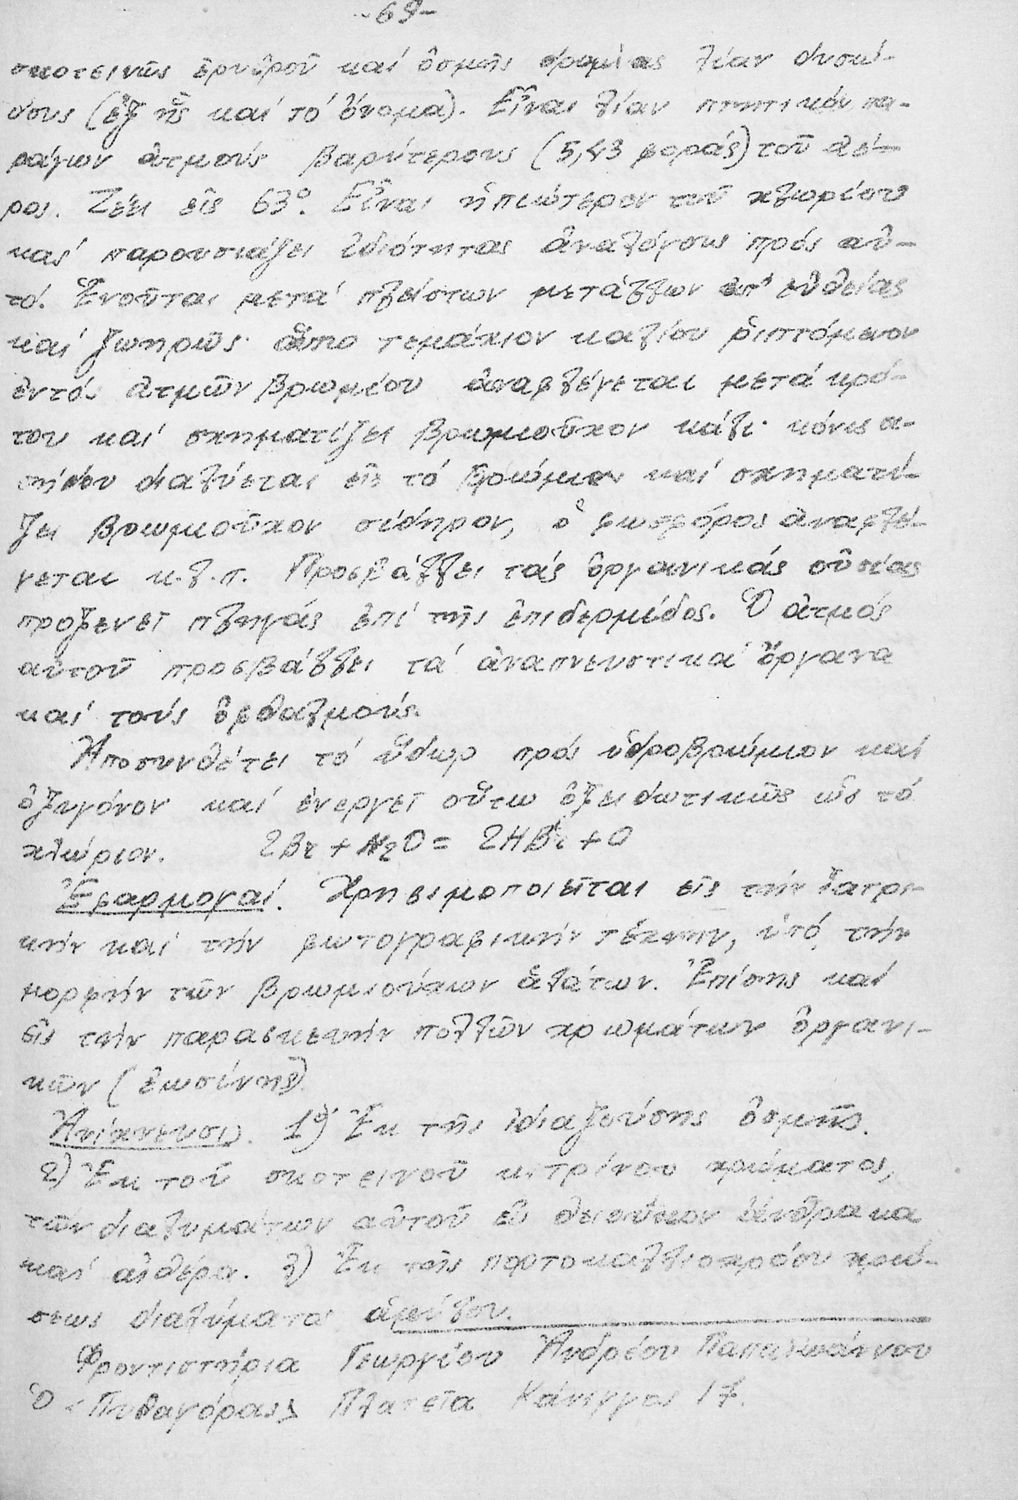 -69-
σκοτεινῶς ἐρυθροῦ καί ὀσμῆς δριμείας λίαν δυσώ-
δους (ἐξ ἧς καί τό ὄνομα). Εἶναι λίαν πτητικόν πα-
ράγων ἀτμούς βαρύτερους (5,43 φοράς) τοῦ ἀέ-
ρος. Ζέει εἰς 63°. Εἶναι ἠπιώτερον τοῦ χλωρίου
καί παρουσιάζει ἰδιότητας ἀναλόγους πρός αὐ-
τό. Ἑνοῦται μετά πλείστων μετάλλων ἀπ' εὐθείας
καί ζωηρῶς τεμάχιον καλίου ῥιπτόμενον
ἐντός ἀτμῶν βρωμίου ἀναφλέγεται μετά κρό-
του καί σχηματίζει βρωμιοῦχον κάλι· κόνις σ-
ιδήρου διαλύεται εἰς τό βρώμιον καί σχηματί-
ζει βρωμιοῦχον σίδηρον, ὁ φωσφόρος ἀναφλέ-
γεται κ.λ.π. Προσβάλλει τάς ὀργανικάς οὐσίας
προξενεῖ πληγάς ἐπί τῆς ἐπιδερμίδος. Ὁ ἀτμός
αὐτοῦ προσβάλλει τά ἀναπνευστικά ὄργανα
καί τούς ὀφθαλμούς.
Ἀποσυνθέτει τό ὕδωρ πρός ὑδροβρώμιον καί
ὀξυγόνον καί ἐνεργεῖ οὕτω ὀξειδωτικῶς ὡς τό
χλώριον. 2Br + H2O = 2HBr + O
Ἐφαρμογαί. Χρησιμοποιεῖται εἰς τήν Ἰατρι-
κήν καί τήν φωτογραφικήν τέχνην, ὑπό τήν
μορφήν τῶν βρωμιούχων ἁλάτων. Ἐπίσης καί
εἰς τήν παρασκευήν πολλῶν χρωμάτων ὀργανι-
κῶν (ἐωσίνης)
Ἀνίχνευσις. 1) Ἐκ τῆς ἰδιαζούσης ὀσμῆς.
2) Ἐκ τοῦ σκοτεινοῦ κιτρίνου χρώματος,
τῶν διαλυμάτων αὐτοῦ εἰς θειοῦχον ἄνθρακα
καί αἰθέρα. 3) Ἐκ τῆς πορτοκαλλιοχρόου χρώ-
σεως διαλύματος ἀμύλου.
Φροντιστήρια Γεωργίου Ἀνδρέου Παπαϊωάννου
Ὁ «Πυθαγόρας» Πλατεῖα Κάνιγγος 17.